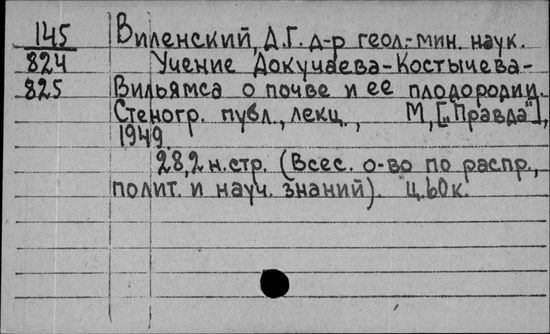 145 Виленский, Д.Г. д-р геол.-мин. наук.
824 Учение Докучаева-Костычева-
825 Вильямса о почве и ее плодородии.
Стеногр. публ., лекц., М, ["Правда"],
1949.
28,2 н.стр. (Всес. о-во по распр.,
полит. и науч. знаний). Ц.60к.